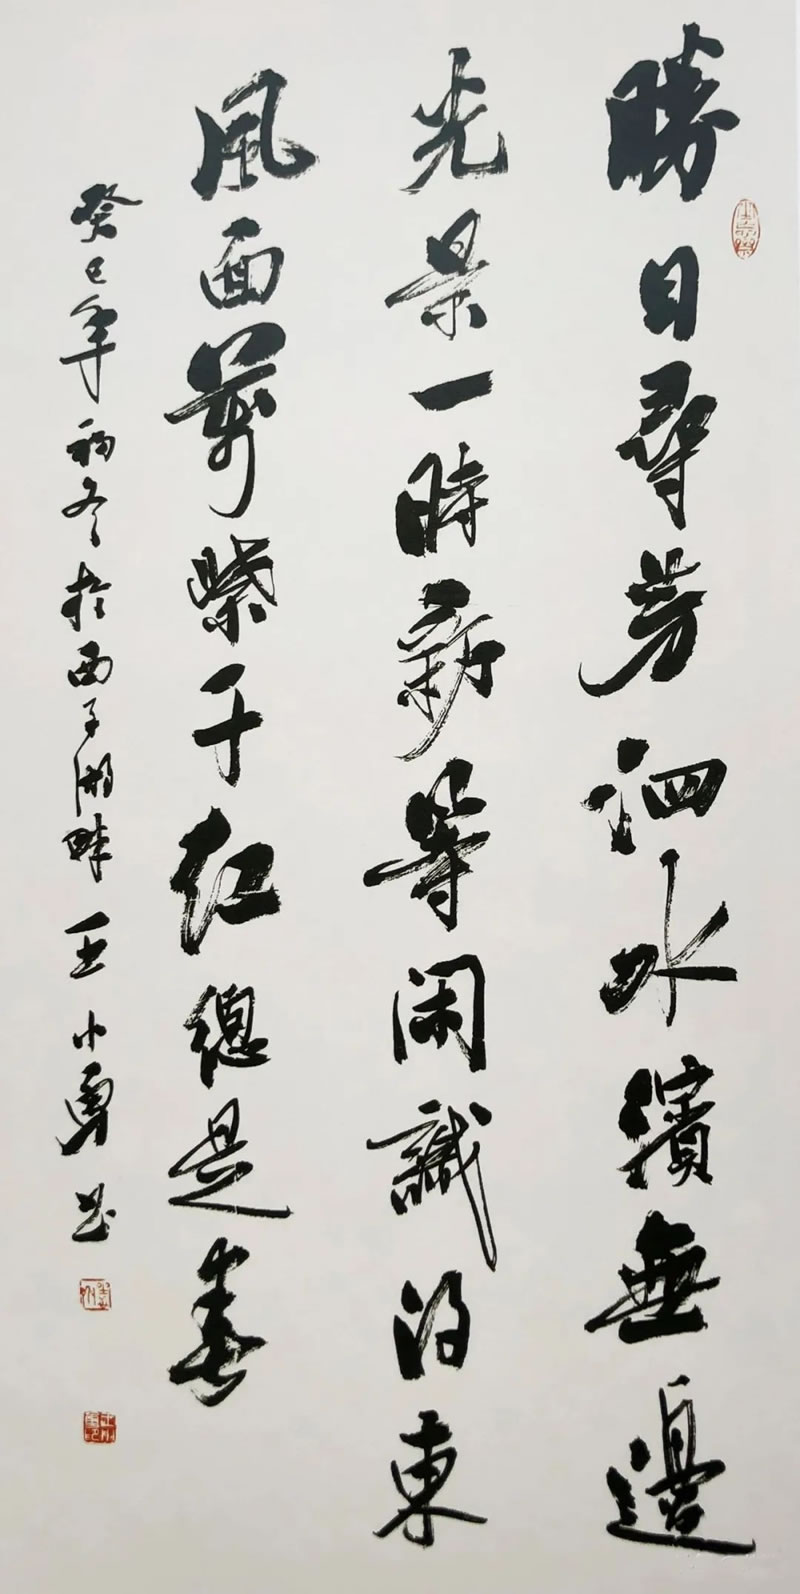 勝日尋芳泗水濱無邊
光景一時新等閑識得東
風面萬紫千紅總是春
癸巳年初冬於西子湖畔王小勇書